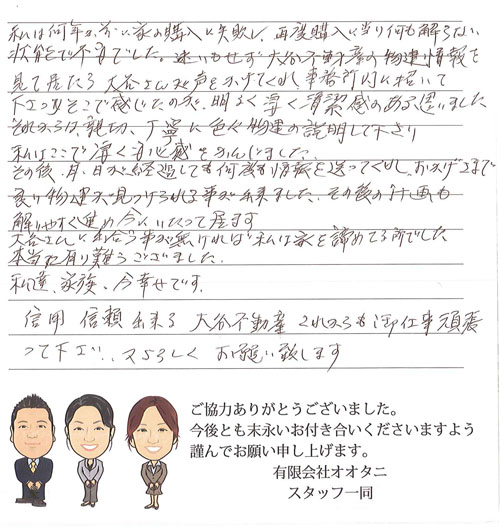 私は何年か前家の購入に失敗し、再度購入に当り何も解らない
状態で不安でした。迷いもせず大谷不動産の物建情報を
見て居たら大谷さんが声をかげてくれ、事務所内に招いて
下さりそこで感じたのが、明るく 清潔感のある思いました
それからは、親切、丁寧に色々物建の説明して下さり
私はここで 安心感をかんじました。
その後、月、日が経過しても何度も情報を送ってくれ、おかげさまで
良い物建が見つけられる事が出来ました、その後の計画も
解りやすく進め今にいたって居ます
大谷さんと出合う事が無ければ私は家を諦めてる所でした
本当に有り難うございました。
私達、家族、今幸せです。
信用 信頼 出来る 大谷不動産 これからも御仕事頑張
って下さい、又よろしく お願い致します
ご協力ありがとうございました。
今後とも末永いお付き合いくださいますよう
謹んでお願い申し上げます。
有限会社オオタニ
スタッフ一同